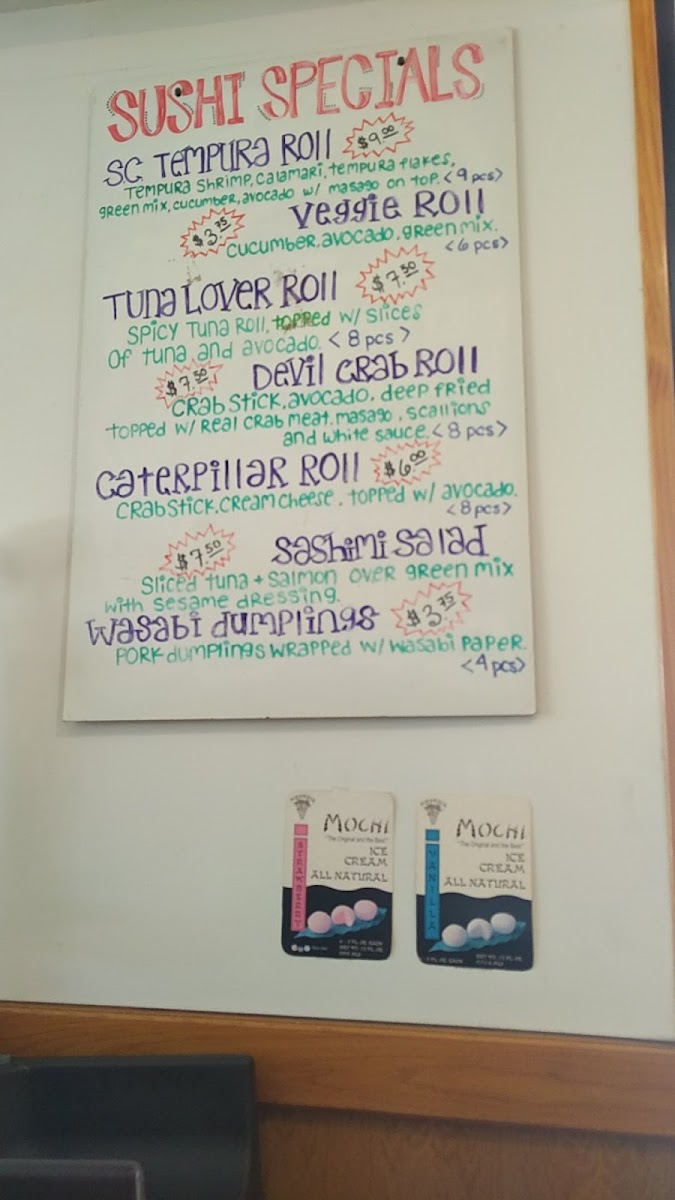 SUSHI SPECIALS
S.C. TEMPURA ROLL $9.00
TEMPURA SHRIMP, CALAMARI, TEMPURA FLAKES,
GREEN MIX, CUCUMBER, AVOCADO W/ MASAGO ON TOP. <9 pcs>
$3.75 VEGGIE ROLL
CUCUMBER, AVOCADO, GREEN MIX.
<6 pcs>
TUNA LOVER ROLL $7.50
SPICY TUNA ROLL, TOPPED W/ SLICES
OF TUNA AND AVOCADO. <8 pcs>
$7.50 DEVIL CRAB ROLL
CRAB STICK, AVOCADO, DEEP FRIED
TOPPED W/ REAL CRAB MEAT, MASAGO, SCALLIONS
AND WHITE SAUCE. <8 pcs>
CATERPILLAR ROLL $6.00
CRAB STICK, CREAM CHEESE, TOPPED W/ AVOCADO.
<8 pcs>
$7.50 SASHIMI SALAD
SLICED TUNA + SALMON OVER GREEN MIX
WITH SESAME DRESSING.
WASABI DUMPLINGS $3.75
PORK DUMPLINGS WRAPPED W/ WASABI PAPER.
<4 pcs>
MOCHI
"The Original and the Best"
ICE
CREAM
ALL NATURAL
STRAWBERRY
MOCHI
"The Original and the Best"
ICE
CREAM
ALL NATURAL
VANILLA